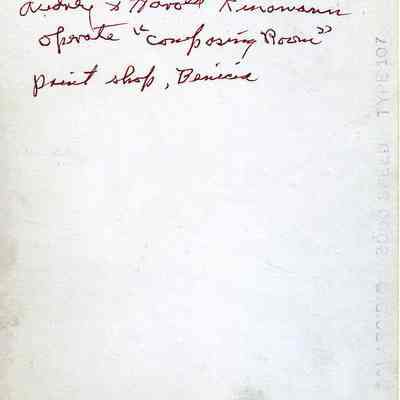 Audrey & Harold
operate "Composing Room"
print shop, Benicia
POLAROID® 3000 SPEED TYPE 107